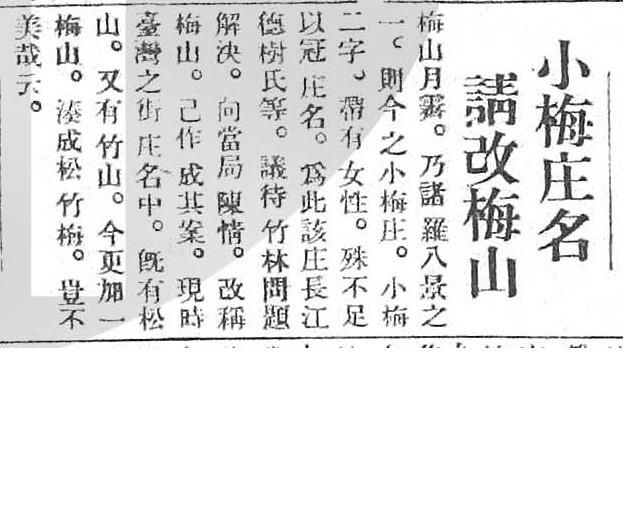 小梅庄名
請改梅山
梅山月霽。乃諸羅八景之
一。則今之小梅庄。小梅
二字。帶有女性。殊不足
以冠庄名。爲此該庄長江
德樹氏等。議待竹林問題
解決。向當局陳情。改稱
梅山。己作成其案。現時
臺灣之街庄名中。旣有松
山。又有竹山。今更加一
梅山。湊成松竹梅。豈不
美哉云。